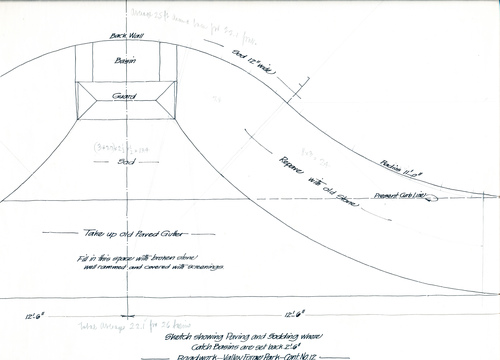 Back Wall
Basin
Sod 12" wide
Guard
Sod
Radius 11'-0"
Repave with old stone
Present Curb Line
Take up old Paved Gutter
Fill in this space with broken stone
well rammed and covered with screenings.
12'-6"
12'-6"
Sketch showing Paving and Sodding where
Catch Basins are set back 2'-6"
Roadwork—Valley Forge Park—Cont. No. 12